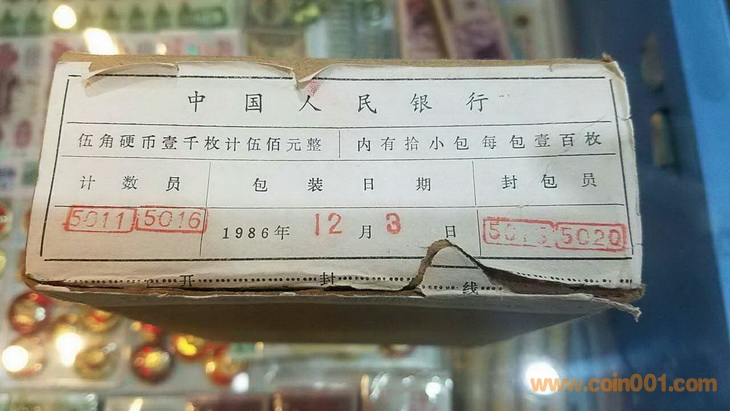 中国人民银行
伍角硬币壹千枚计伍佰元整 内有拾小包每包壹百枚
计数员 包装日期 封包员
5011 5016 1986年 12 月 3 日 5020
开封线
www.coin001.com